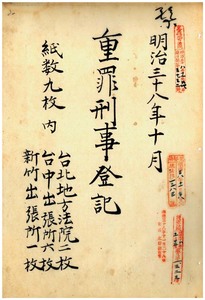 明治三十八年十月
重罪刑事登記
紙数九枚 内
台北地方法院二枚
台中出張所六枚
新竹出張所一枚